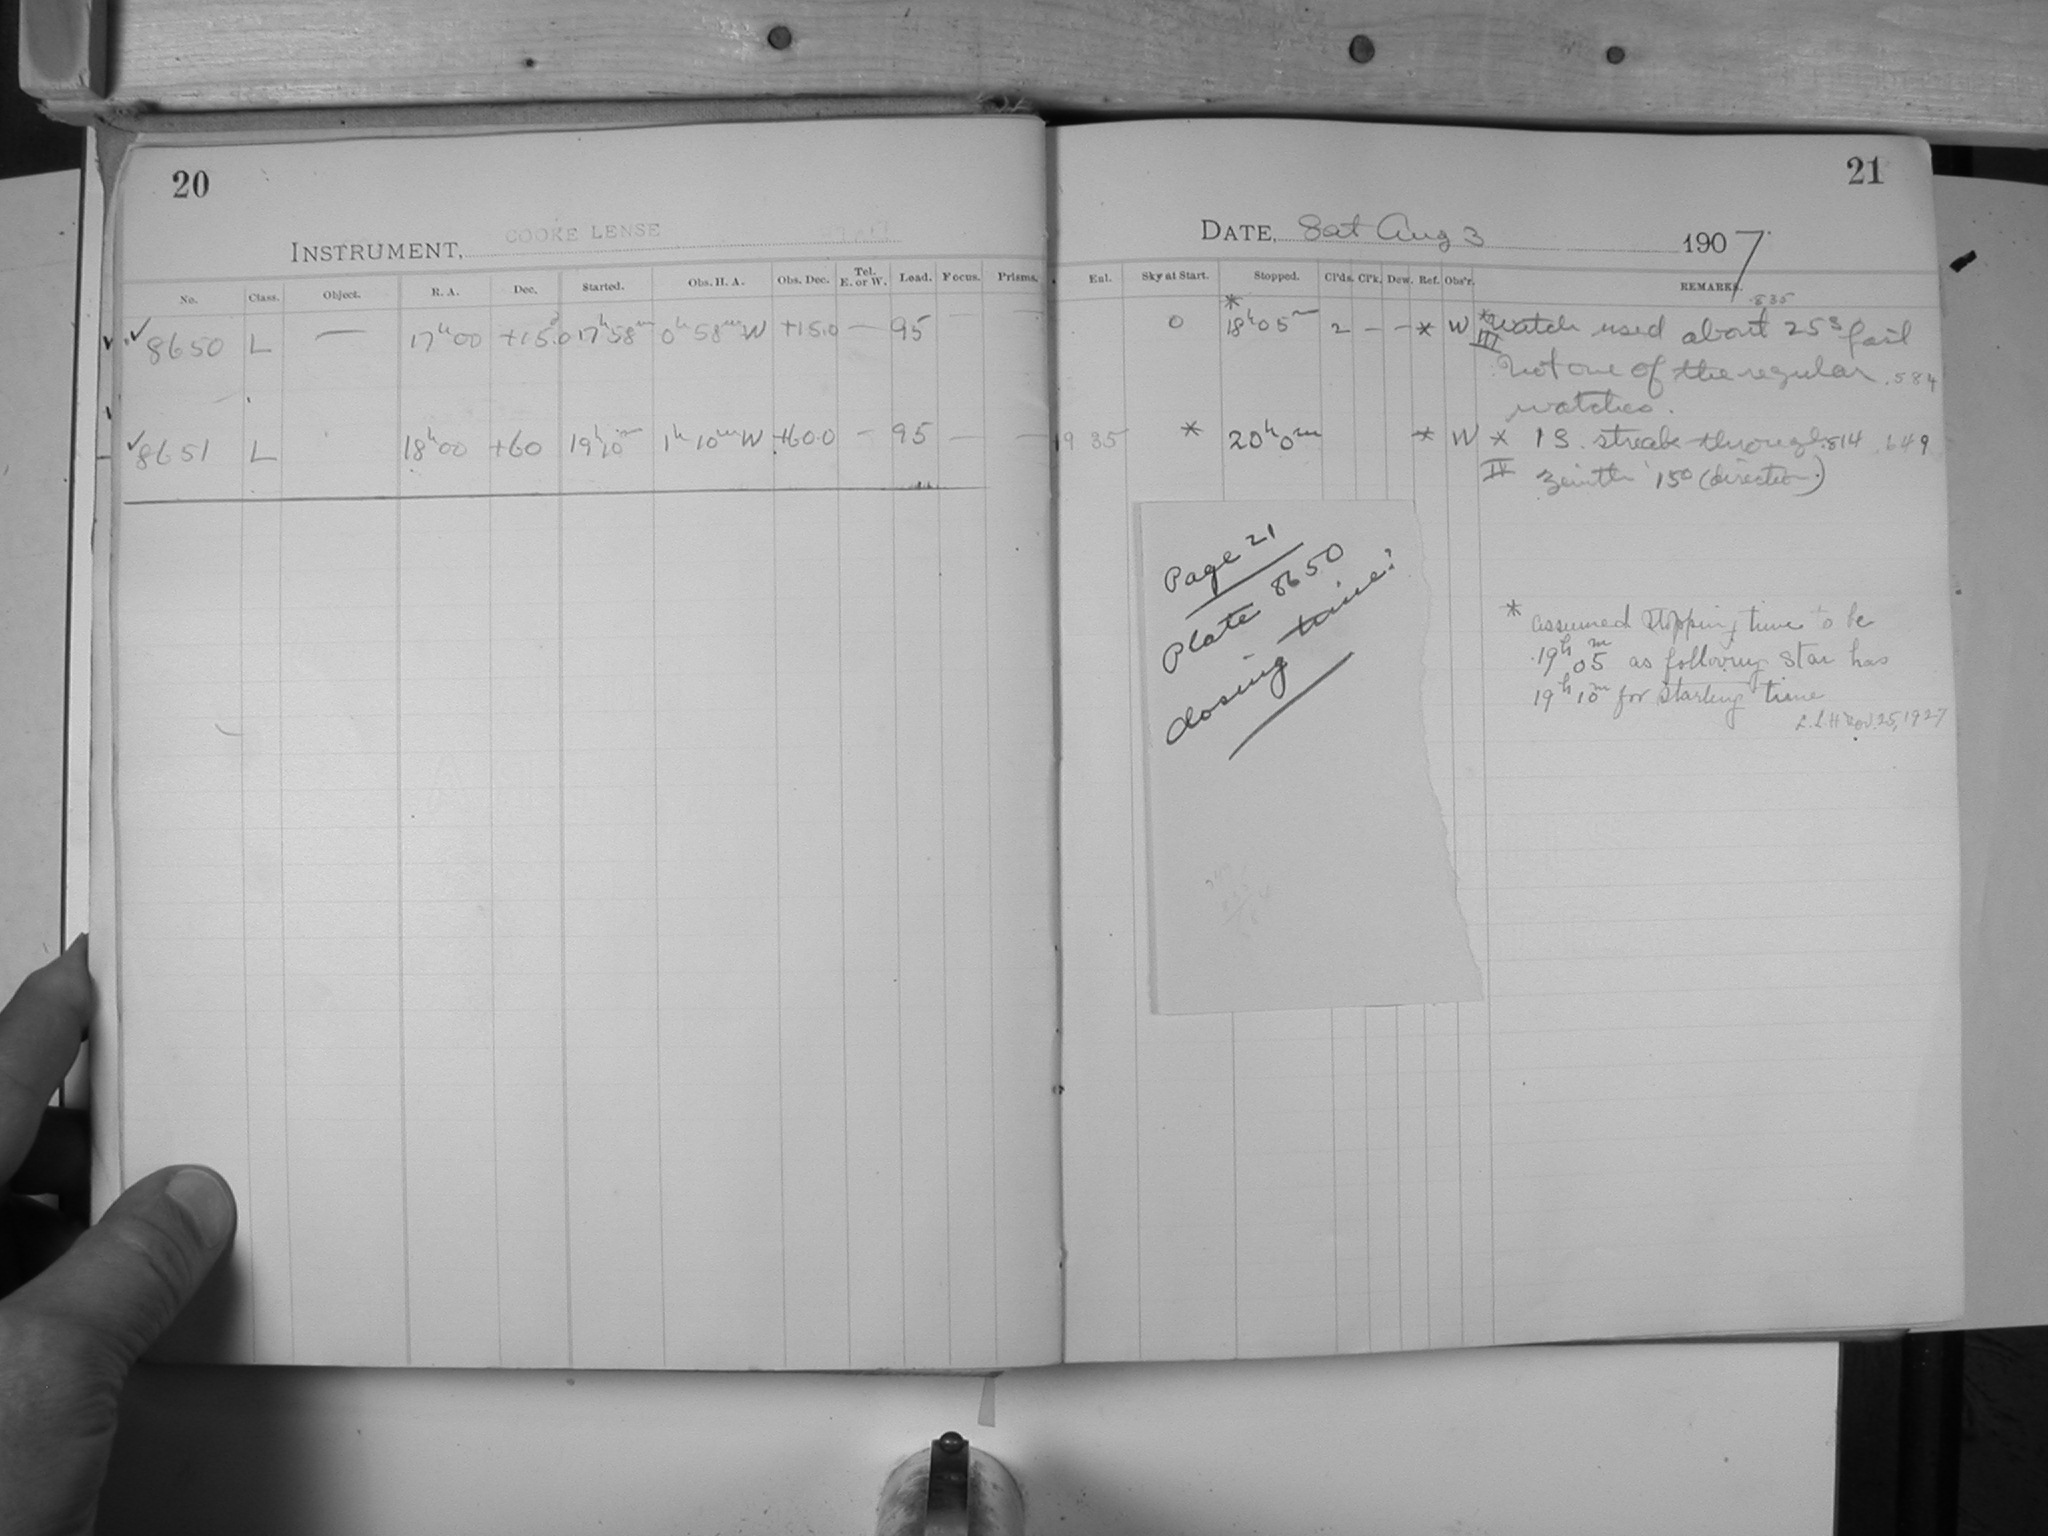 20
INSTRUMENT, COOKE LENSE
No. Class. Object. R. A. Dec. Started. Obs. H. A. Obs. Dec. Tel. E. or W. Load. Focus. Prisms.
✓8650 L — 17ʰ00 +15.0 17ʰ58ᵐ 0ʰ58ᵐW +15.0 — 95 — —
✓8651 L 18ʰ00 +60 19ʰ10ᵐ 1ʰ10ᵐW +60.0 — 95 — —
21
DATE, Sat Aug 3 1907
Enl. Sky at Start. Stopped. Cl'ds. Cl'k. Dew. Ref. Obs'r. REMARKS.
.835
0 *18ʰ05ᵐ 2 — — * W *Watch used about 25ˢ fast
III
Not one of the regular .584
watches.
19 35 * 20ʰ0ᵐ * W * 1 S. streak through .814 .649
IV zenith 15° (direction)
Page 21
Plate 8650
closing time?
* assumed stopping time to be
19ʰ05ᵐ as following star has
19ʰ10ᵐ for starting time
L.L.H Nov. 25, 1927